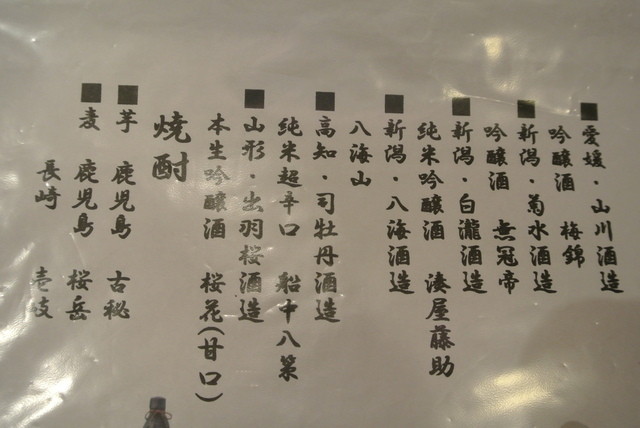 ■愛媛・山川酒造
吟醸酒 梅錦
■新潟・菊水酒造
吟醸酒 無冠帝
■新潟・白瀧酒造
純米吟醸酒 湊屋藤助
■新潟・八海酒造
八海山
■高知・司牡丹酒造
純米超辛口 船中八策
■山形・出羽桜酒造
本生吟醸酒 桜花(甘口)
焼酎
■芋 鹿児島 古秘
■麦 鹿児島 桜岳
長崎 壱岐